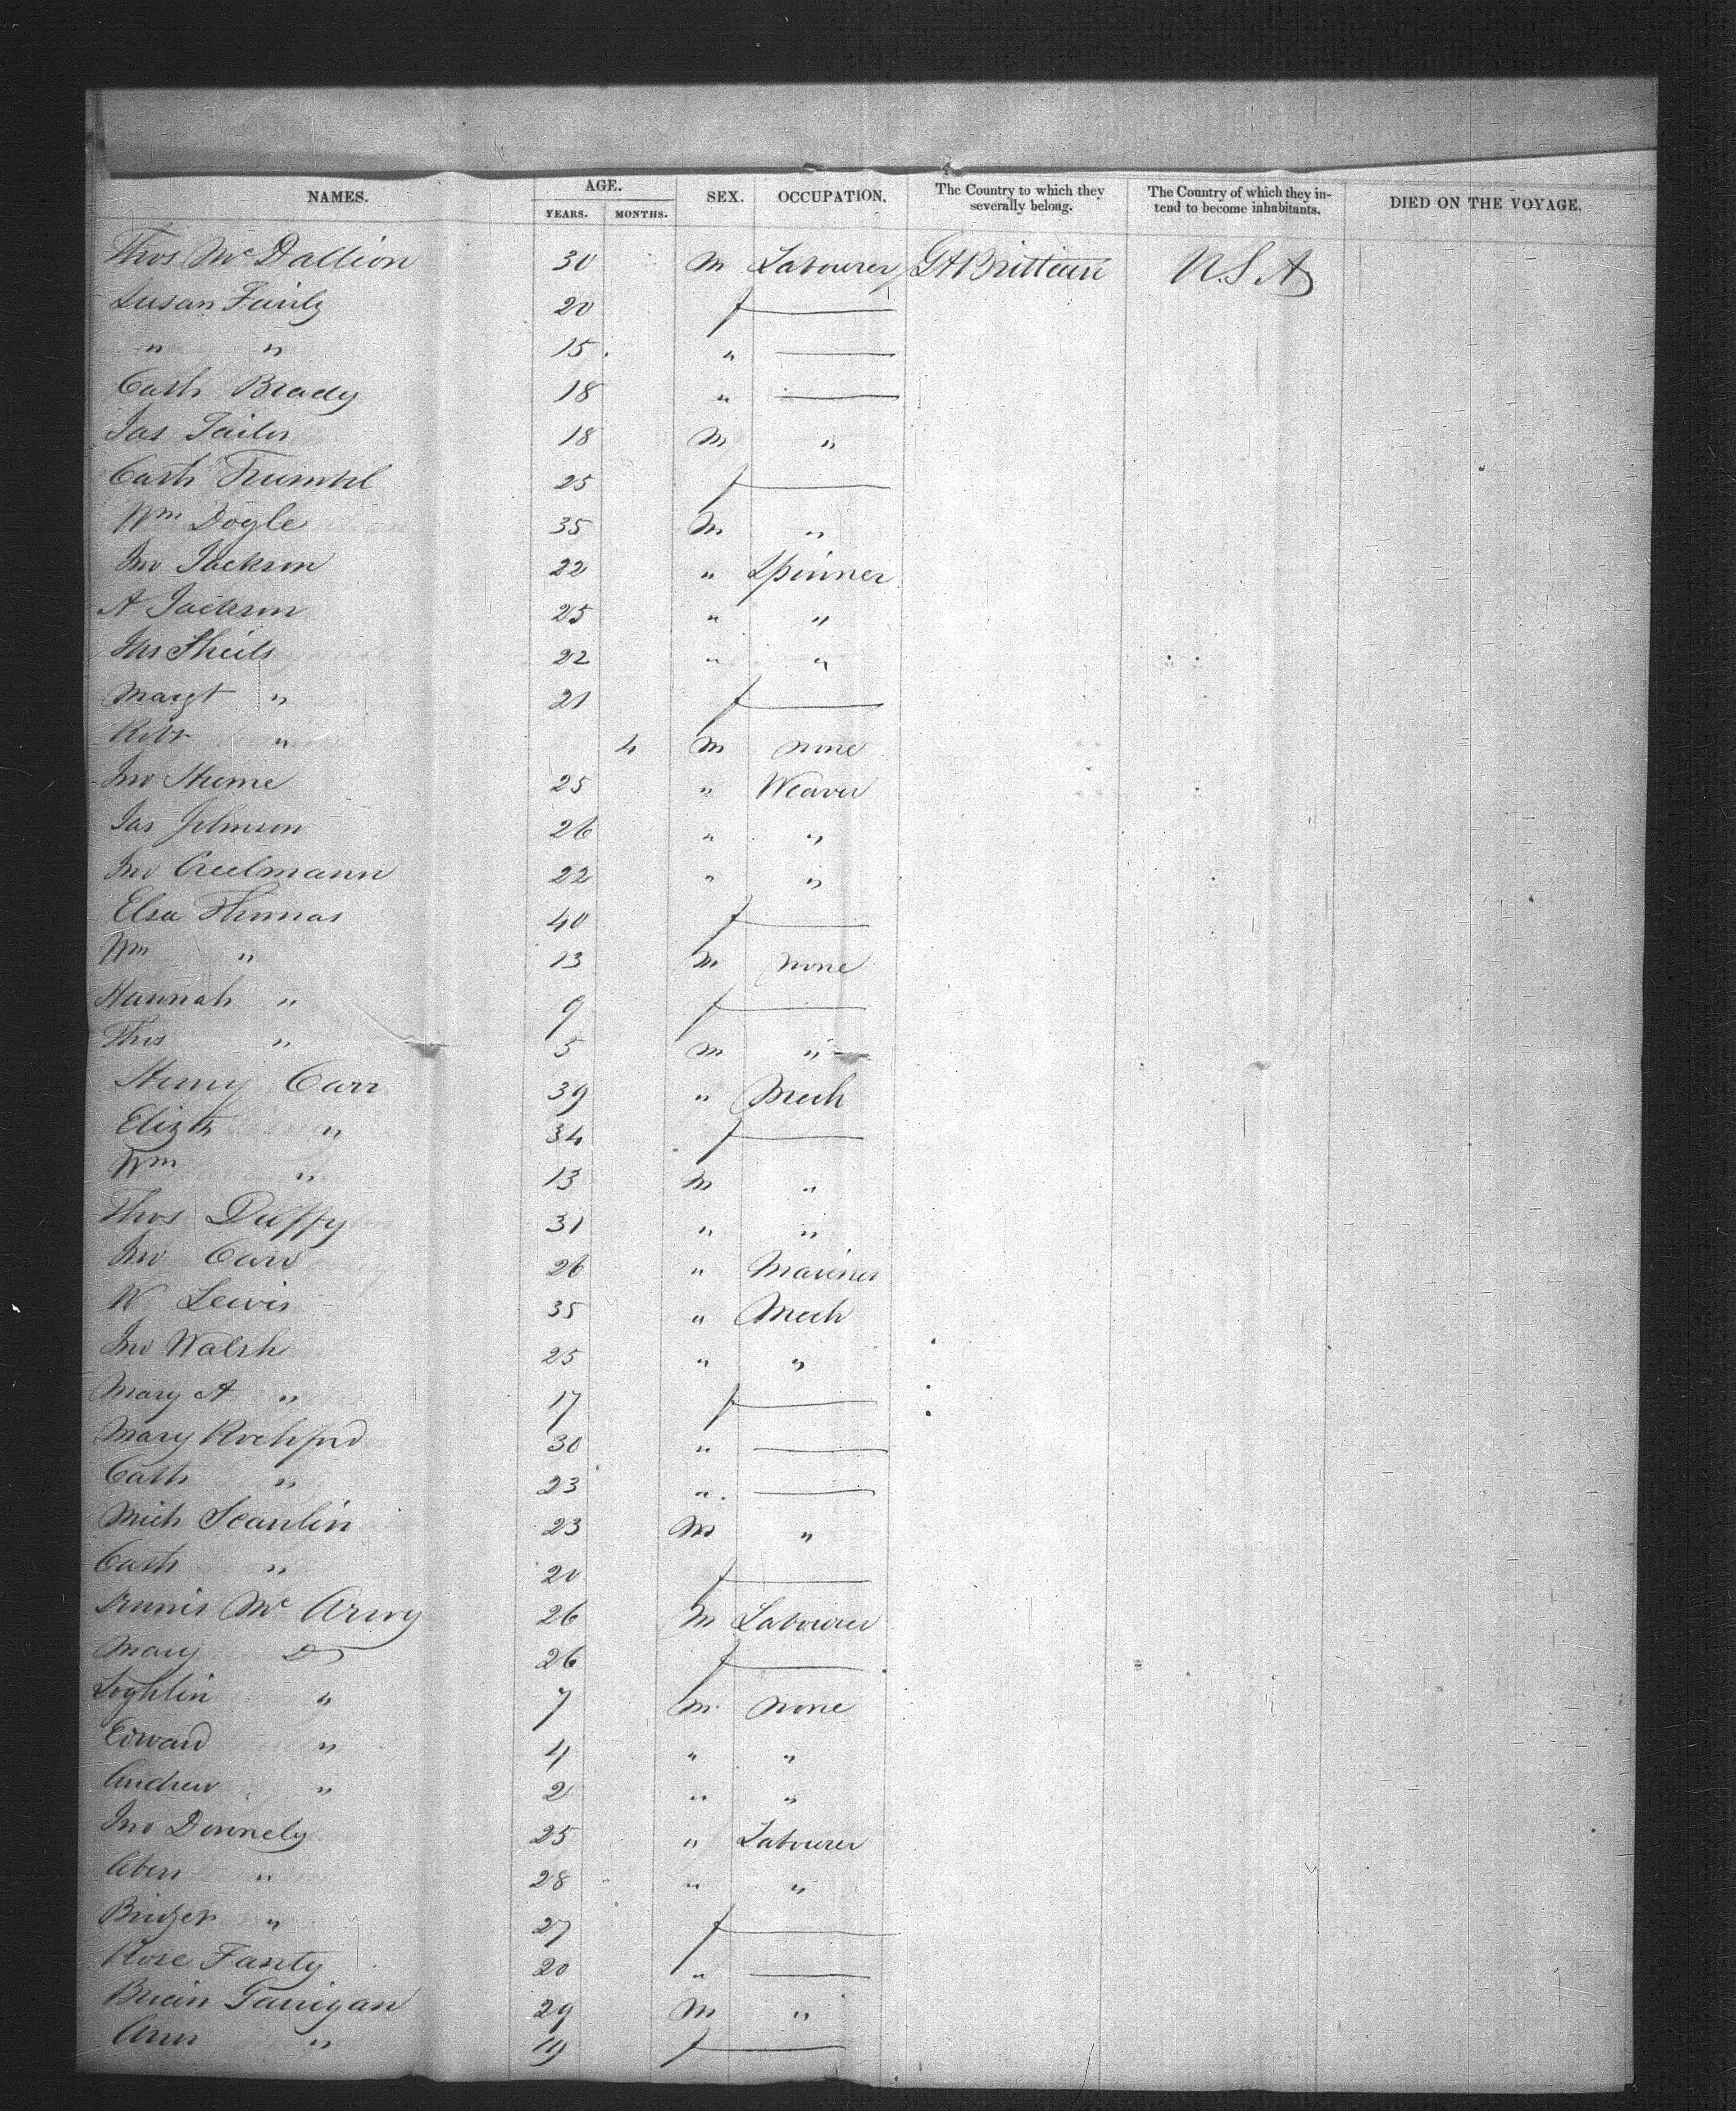 NAMES. AGE. YEARS. MONTHS. SEX. OCCUPATION. The Country to which they severally belong. The Country of which they intend to become inhabitants. DIED ON THE VOYAGE.
Thos Mc Dallion 30 M Labourer Gt Brittain U.S.A
Susan Fairly 20 f —
" " 15 " —
Cath Brady 18 " —
Jas Tailor 18 M "
Cath Trumbl 25 f —
Wm Dogle 35 M "
Jno Jackson 22 " Spinner
A Jackson 25 " "
Jas Sheils 22 " "
Margt " 21 f —
Robt " 4 M none
Jno Hume 25 " Weaver
Jas Johnson 26 " "
Jno Creelmann 22 " "
Elsa Thomas 40 f —
Wm " 13 M none
Hannah " 9 f —
Thos " 5 M "
Henry Carr 39 " Mech
Elizth " 34 f —
Wm " 13 M "
Thos Duffy 31 " "
Jno Carr 26 " Mariner
W Lewis 35 " Mech
Jno Walsh 25 " "
Mary A " 17 f —
Mary Rochford 30 " —
Cath " 23 " —
Mich Scanlin 23 M "
Cath " 20 f —
Dennis Mc Arvy 26 M Labourer
Mary Do 26 f —
Loghlin " 7 M none
Edward " 4 " "
Andrew " 2 " "
Jno Donnely 25 " Labourer
" 28 " "
Bridget " 27 f —
Rose Fanty 20 " —
Brian Garrigan 29 M "
Ann " 19 f —